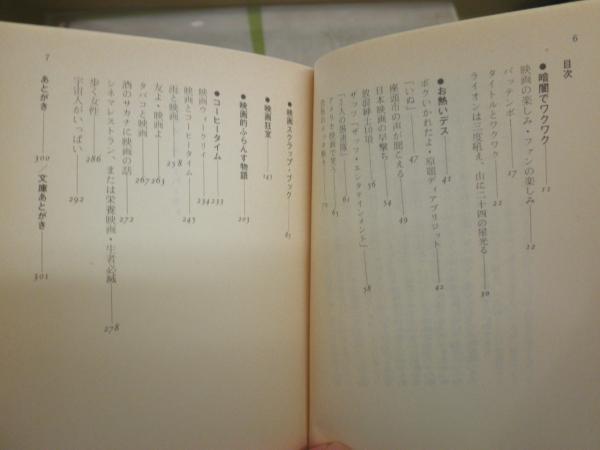 6
目次
●暗闇でワクワク——11
映画の楽しみ・ファンの楽しみ——12
バッテンボー——17
タイトルとワクワク——22
ライオンは三度吼え、山に二十四の星光る——30
●お熱いデス——41
ボクいかれたよ・原題デ アブリジット——42
「いぬ」——47
座頭市の声が聞こえる——49
日本映画の早撃ち——54
放浪紳士10項——56
ザッツ「ザッツ・エンタテインメント」——58
「2人の愚連隊」——61
アメリカ映画で笑う——65
●映画スクラップ・ブック——85
●映画狂室——143
●映画的ふらんす物語——203
●コーヒータイム——233
映画ウィークリイ——234
映画とコーヒータイム——245
雨と映画——258
友よ・映画よ——263
タバコと映画——267
酒のサカナに映画の話——272
シネマレストラン、または栄養映画・生者必滅——278
歩く女性——286
宇宙人がいっぱい——292
あとがき——300／文庫あとがき——301
7